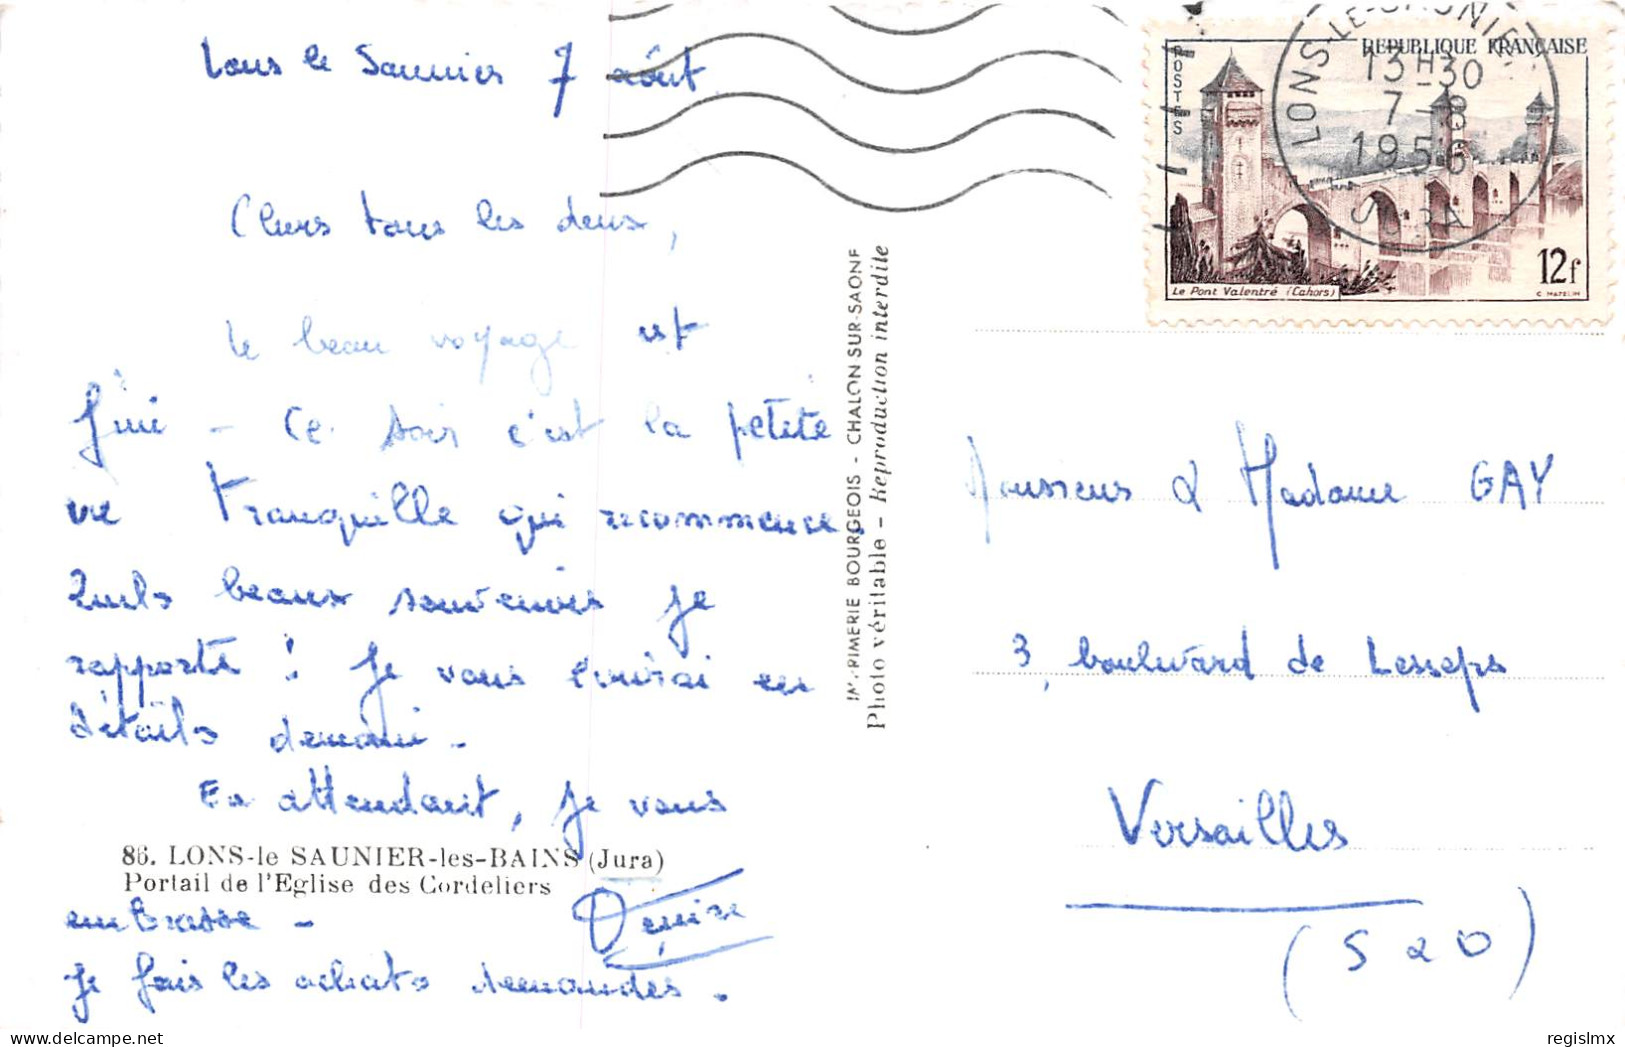 Lons le Saunier 7 août
Chers tous les deux,
Le beau voyage est
fini - Ce soir c'est la petite
vie tranquille qui recommence.
Quels beaux souvenirs je
rapporte ! Je vous écrirai en
détails demain -
En attendant, je vous
86. LONS-le SAUNIER-les-BAINS (Jura)
Portail de l'Eglise des Cordeliers
embrasse - Denise
Je fais les achats demandés.
IMPRIMERIE BOURGEOIS - CHALON-SUR-SAONE
Photo véritable - Reproduction interdite
LONS-LE-SAUNIER
13H30
7-8
1956
JURA
REPUBLIQUE FRANÇAISE
POSTES
12f
Le Pont Valentré (Cahors)
C. MAZELIN
Monsieur & Madame GAY
3, boulevard de Lesseps
Versailles
(S & O)
regislmx